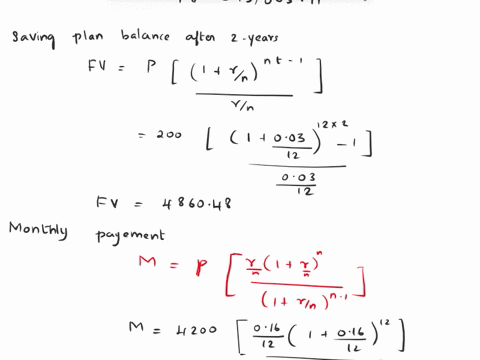 Saving plan balance after 2-years
FV = P [ (1 + r/n)^{nt-1} ] / r/n
= 200 [ (1 + 0.03/12)^{12×2} - 1 ] / 0.03/12
FV = 4860.48
Monthly payement
M = P [ r/n (1 + r/n)^n / (1 + r/n)^{n-1} ]
M = 4200 [ 0.16/12 (1 + 0.16/12)^{12} ]